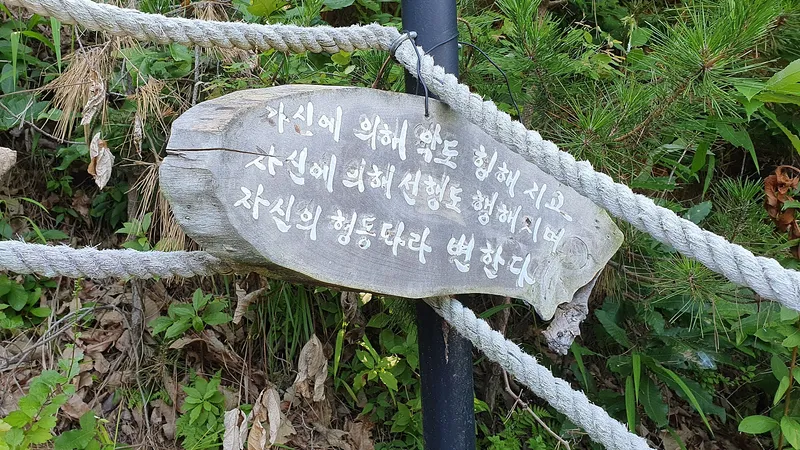 자신에 의해 악도 힝해 지고
자신에 의해 선형도 행해지며
자신의 형동따라 변한다